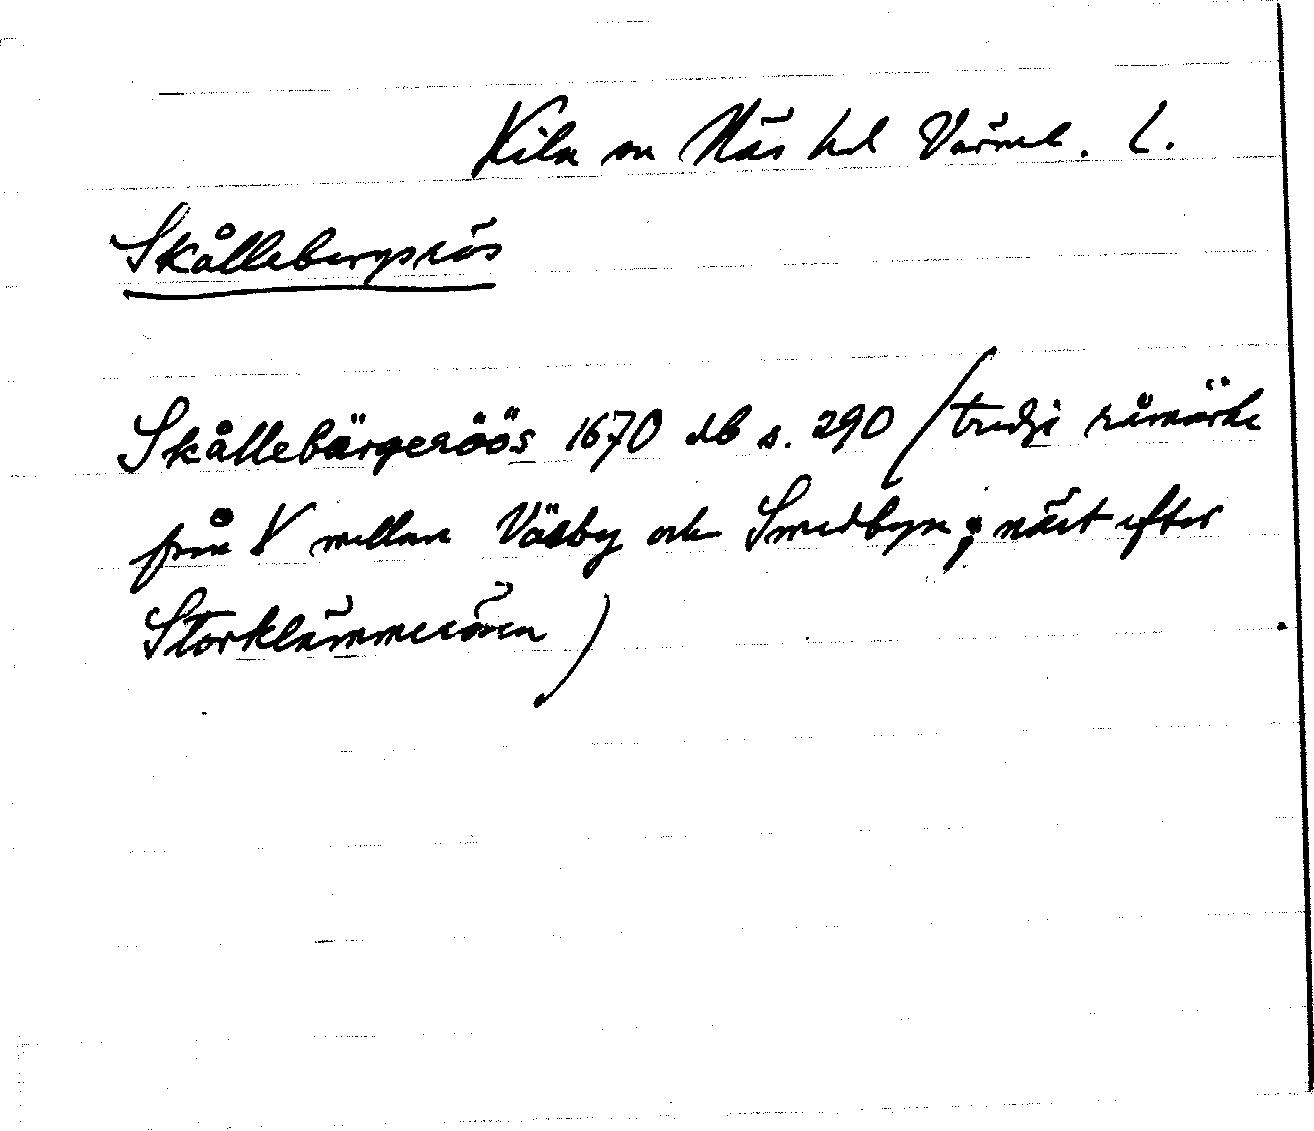 Kila sn Näs hd Värml. L.
Skållebergsrös
Skållebärgeröös 1670 db s. 290 (tredje råmärke
från V mellan Välby och Smedbyn; näst efter
Storklämmerören)